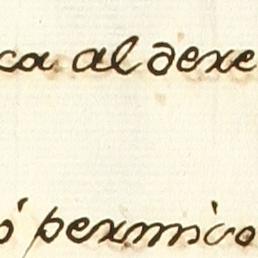 ca al dere
ó permico